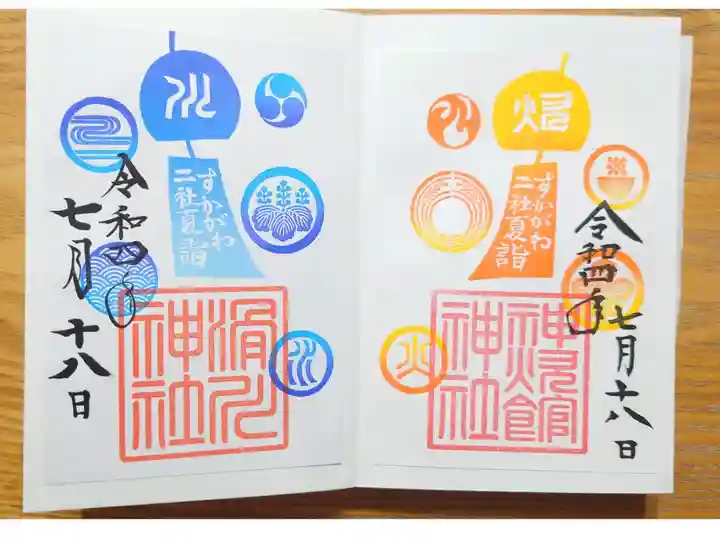 すかがわ
二社夏詣
令和四年
七月十八日
滑川
神社
すかがわ
二社夏詣
火
令和四年
七月十八日
神炊館
神社